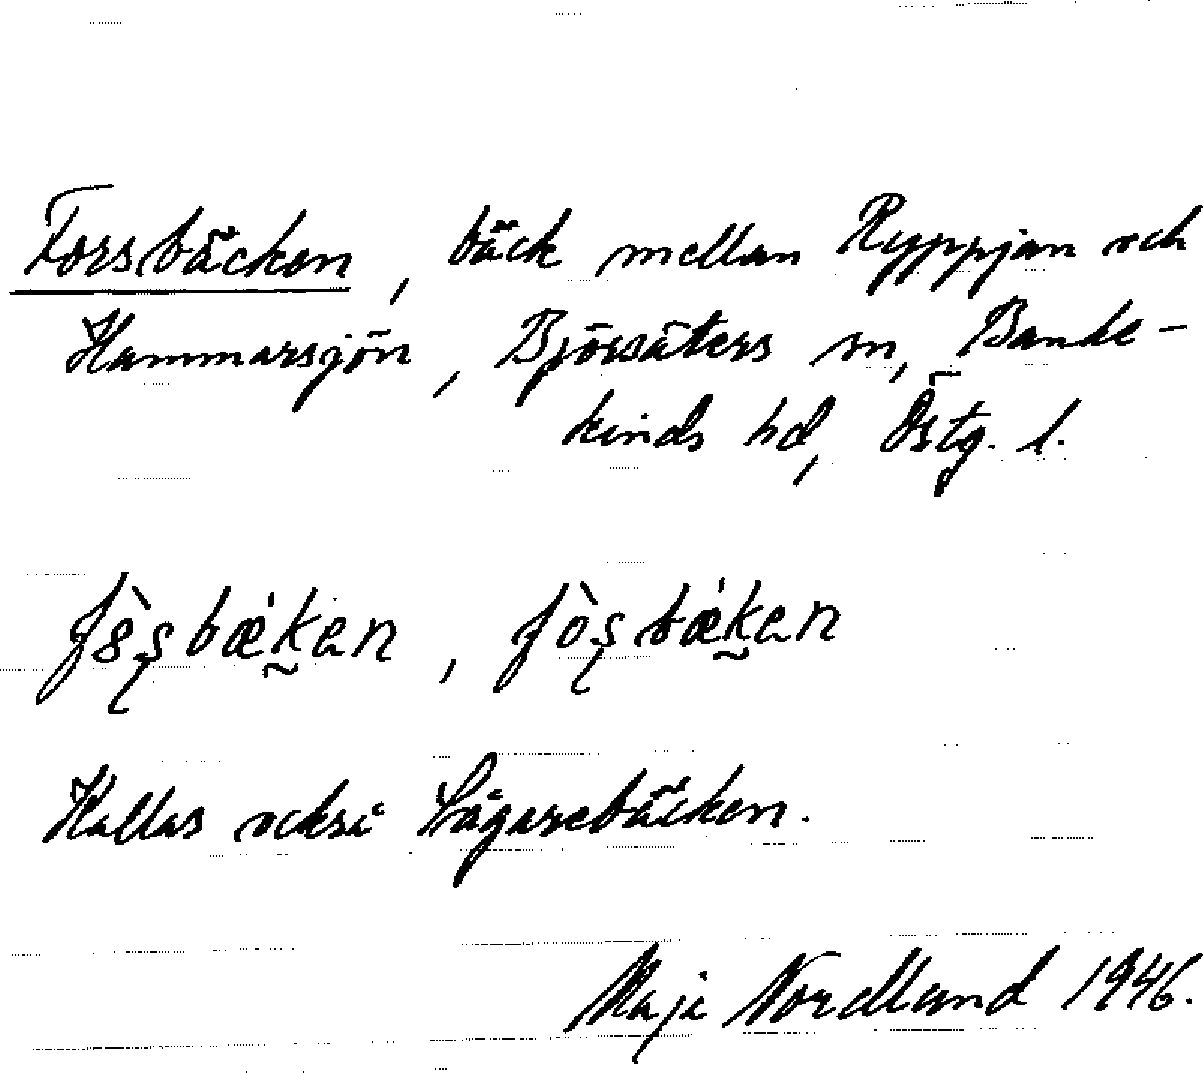 Forsbäcken, bäck mellan Ryppjan och
Hammarsjön, Björsäters sn, Bande-
kinds hd, Östg. l.
bæ̀ken, bæ̀ken
Kallas också Lågarebäcken.
Maja Nordlund 1946.